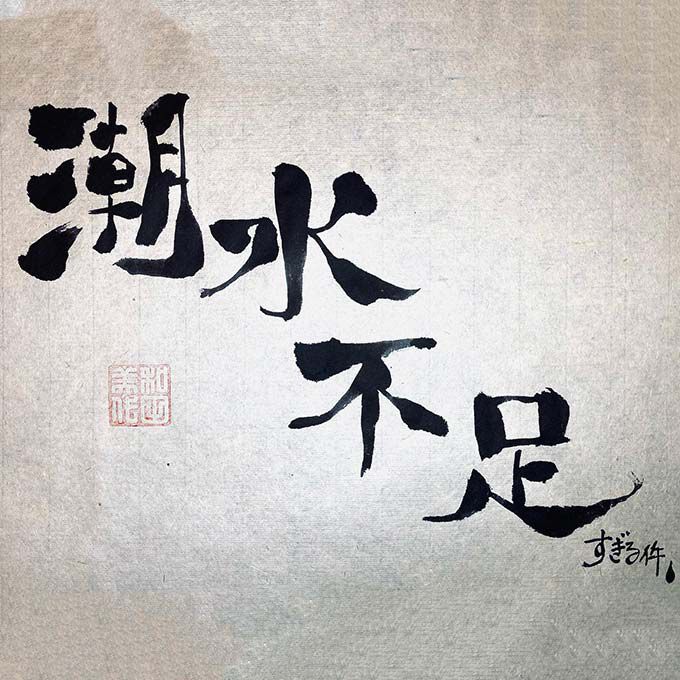 潮水
不足
すぎる件